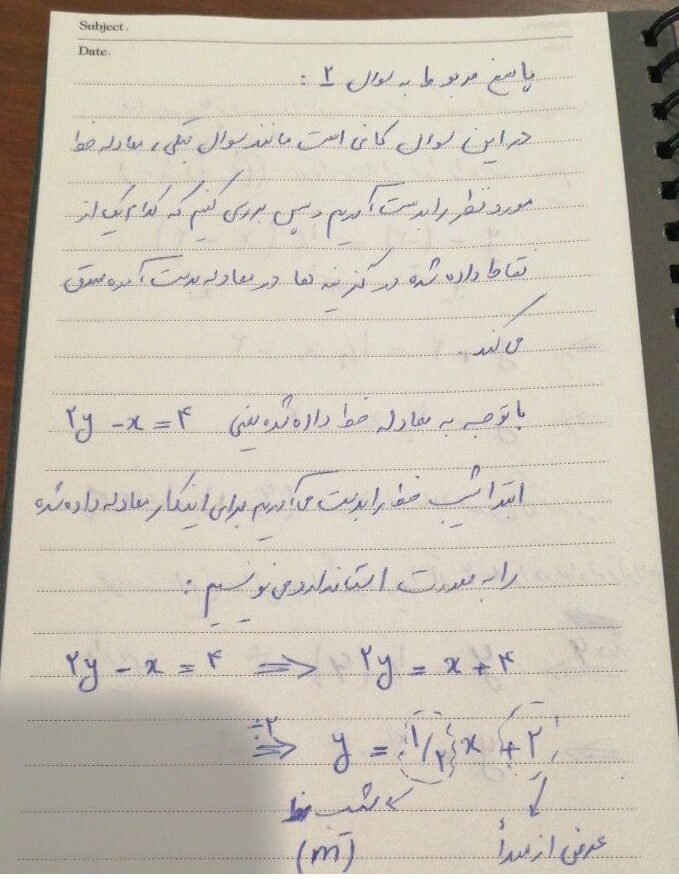 Subject.
Date.
پاسخ مربوط به سوال ۲ :
در این سوال کافی است مانند سوال قبلی، معادله خط
مورد نظر را بدست آوریم و سپس بررسی کنیم که کدام یک از
نقاط داده شده در گزینه ها در معادله بدست آمده صدق
می کند.
با توجه به معادله خط داده شده یعنی ۲y - x = ۴
ابتدا شیب خط را بدست می آوریم برای اینکار معادله داده شده
را به صورت استاندارد می نویسیم :
۲y - x = ۴ ⇒ ۲y = x + ۴
÷۲ ⇒ y = ۱/۲ x + ۲
شیب خط
(m)
عرض از مبدأ